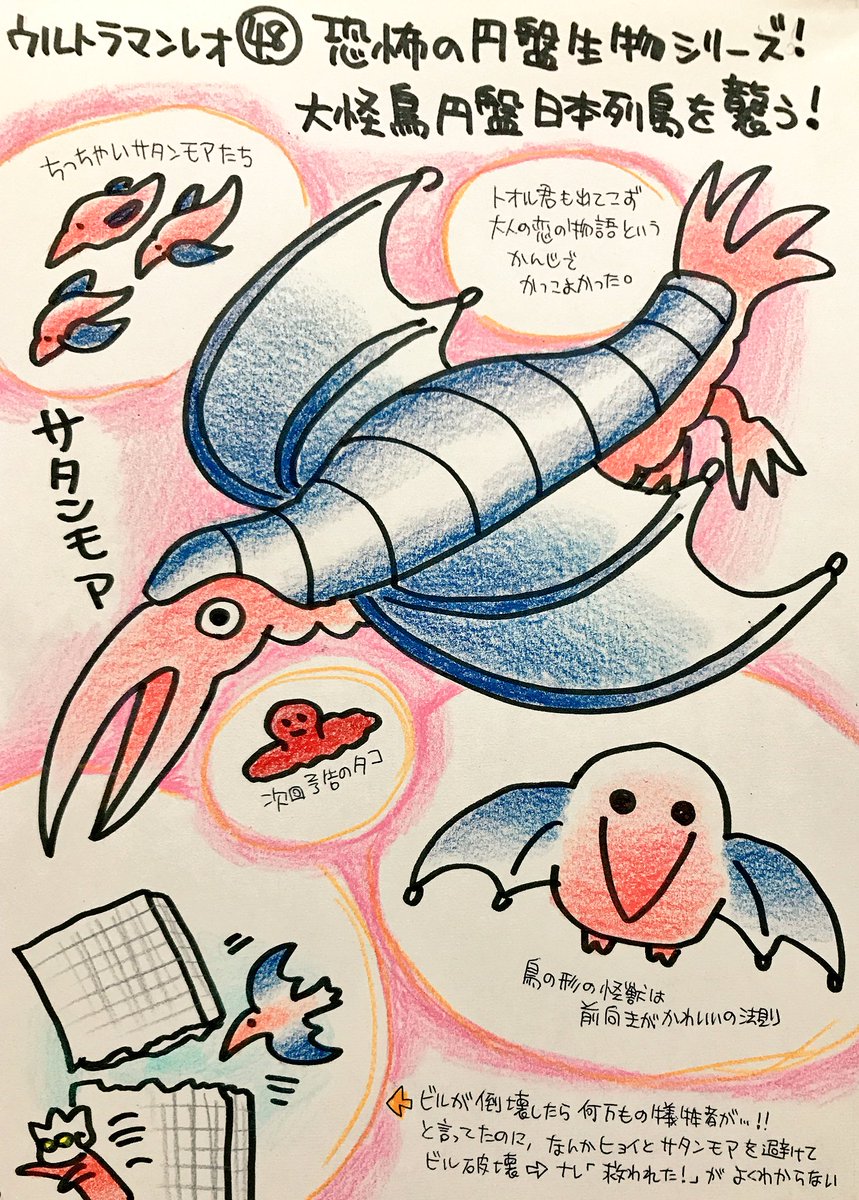 ウルトラマンレオ㊽ 恐怖の円盤生物シリーズ!
大怪鳥円盤日本列島を襲う!
ちっちゃいサタンモアたち
トオル君も出てこず
大人の恋の物語という
かんじで
かっこよかった。
サタンモア
次回予告のタコ
鳥の形の怪獣は
前向きがかわいいの法則
ビルが倒壊したら何万もの犠牲者が…!!
と言ってたのに、なんかヒョイとサタンモアを避けて
ビル破壊⇨ナレ「救われた!」がよくわからない